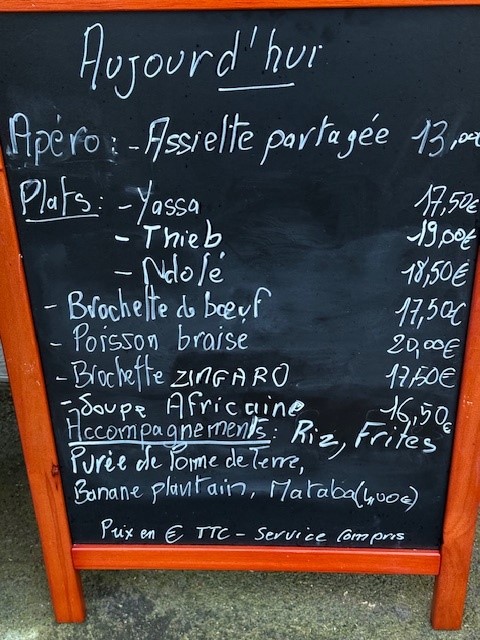 Aujourd'hui
Apéro: - Assiette partagée 13,00€
Plats: - Yassa 17,50€
- Thieb 19,00€
- Ndolé 18,50€
- Brochette de bœuf 17,50€
- Poisson braise 20,00€
- Brochette ZINGARO 17,50€
- Soupe Africaine 16,50€
Accompagnements: Riz, Frites
Purée de Pomme de Terre,
Banane plantain, Mataba (4,00€)
Prix en € TTC - Service Compris